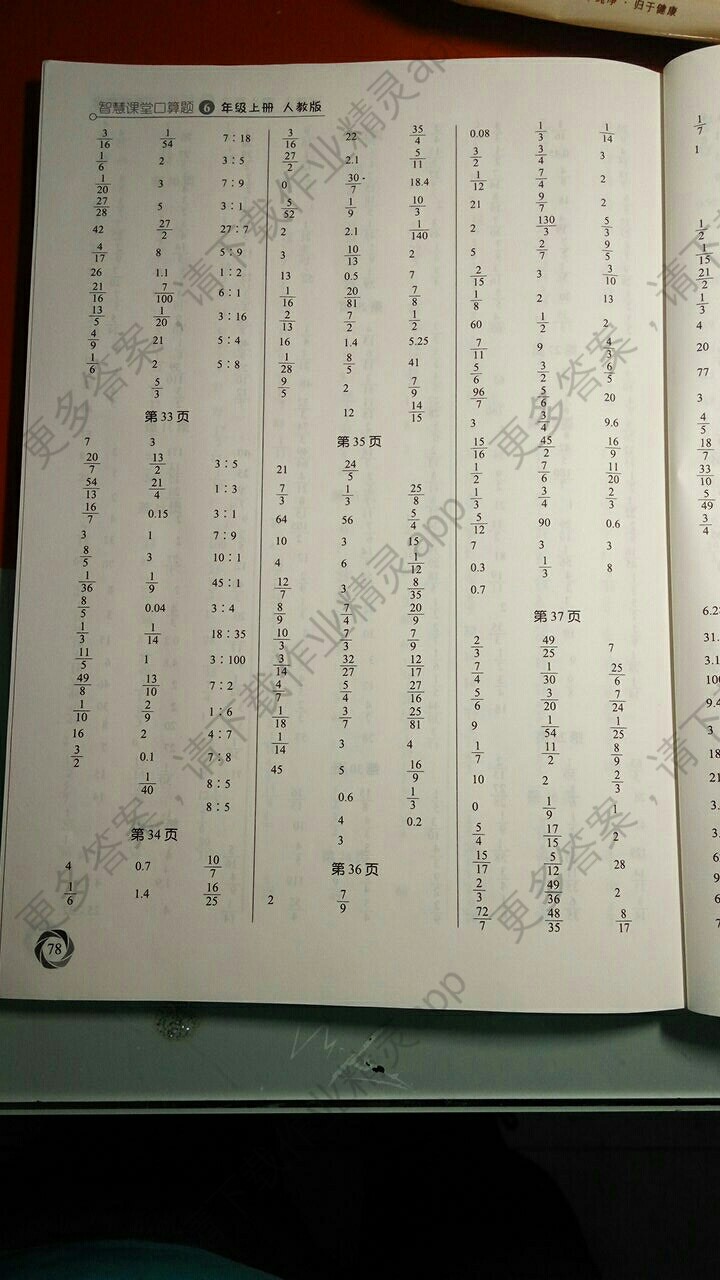 ·归于健康
智慧课堂口算题 6 年级上册 人教版
3/16 1/54 7∶18
1/6 2 3∶5
1/20 3 7∶9
27/28 5 3∶1
42 27/2 27∶7
4/17 8 5∶9
26 1.1 1∶2
21/16 7/100 6∶1
13/5 1/20 3∶16
4/9 21 5∶4
1/6 2 5∶8
5/3
第33页
7 3
20/7 13/2 3∶5
54/13 21/4 1∶3
16/7 0.15 3∶1
3 1 7∶9
8/5 3 10∶1
1/36 1/9 45∶1
8/5 0.04 3∶4
1/3 1/14 18∶35
11/5 1 3∶100
49/8 13/10 7∶2
1/10 2/9 1∶6
16 2 4∶7
3/2 0.1 7∶8
1/40 8∶5
8∶5
第34页
4 0.7 10/7
1/6 1.4 16/25
3/16 22 35/4
27/2 2.1 5/11
0 30/7 18.4
5/52 1/9 10/3
2 2.1 1/140
3 10/13 2
13 0.5 7
1/16 20/81 7/8
2/13 7/2 1/2
16 1.4 5.25
1/28 8/5 41
9/5 2 7/9
12 14/15
第35页
21 24/5
7/3 1/3 25/8
64 56 5/4
10 3 15
4 6 1/12
12/7 3 8/35
8/9 7/4 20/9
10/3 7/3 7/9
3/14 32/27 12/17
4/7 5/4 27/16
1/18 3/7 25/81
1/14 3 4
45 5 16/9
0.6 1/3
4 0.2
3
第36页
2 7/9
0.08 1/3 1/14
3/2 3/4 3
1/12 7/4 2
21 9/7 2
2 130/3 5/3
5 2/7 9/5
2/15 3 3/10
1/8 2 13
60 1/2 2
7/11 9 4/3
5/6 3/2 6/5
96/7 5/6 20
3 3/4 9.6
15/16 45/2 16/9
1/2 7/6 11/20
1/3 3/4 2/3
5/12 90 0.6
7 3 3
0.3 1/3 8
0.7
第37页
2/3 49/25 7
7/4 1/30 25/6
5/6 3/20 7/24
9 1/54 1/25
1/7 11/2 8/9
10 2 2/3
0 1/9 1
5/4 17/15 2
15/17 5/12 28
2/3 49/36 2
72/7 48/35 8/17
78
1/7
1
1/2
1/15
21/2
1/3
4
20
77
3
4/5
18/7
33/10
5/49
3/4
更多答案，请下载作业精灵app
更多答案，请下载作业精灵app
更多答案，请下载作业精灵app
更多答案，请下载作业精灵app